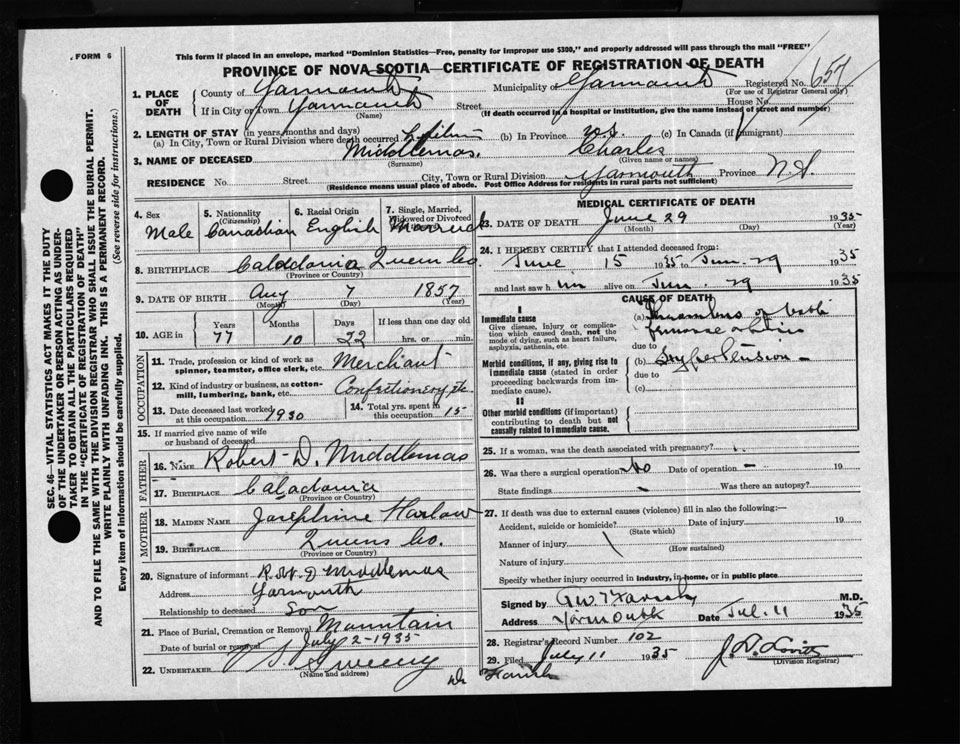 FORM 6
This form if placed in an envelope, marked "Dominion Statistics—Free, penalty for improper use $300," and properly addressed will pass through the mail "FREE"
PROVINCE OF NOVA SCOTIA—CERTIFICATE OF REGISTRATION OF DEATH
1. PLACE OF DEATH
County of Yarmouth Municipality of Yarmouth Registered No. 657
(For use of Registrar General only)
If in City or Town Yarmouth Street House No.
(Name) (If death occurred in a hospital or institution, give the name instead of street and number)
2. LENGTH OF STAY (in years, months and days)
(a) In City, Town or Rural Division where death occurred (b) In Province (c) In Canada (if immigrant)
3. NAME OF DECEASED Middlemas. Charles
(Surname) (Given name or names)
RESIDENCE No. Street City, Town or Rural Division Yarmouth Province N.S.
(Residence means usual place of abode. Post Office Address for residents in rural parts not sufficient)
4. Sex Male
5. Nationality (Citizenship) Canadian
6. Racial Origin English
7. Single, Married, Widowed or Divorced
8. BIRTHPLACE Caldonia Queens Co.
(Province or Country)
9. DATE OF BIRTH Aug 7 1857
(Month) (Day) (Year)
10. AGE in Years Months Days If less than one day old
77 10 22 hrs. or min.
OCCUPATION
11. Trade, profession or kind of work as spinner, teamster, office clerk, etc. Merchant
12. Kind of industry or business, as cotton-mill, lumbering, bank, etc. Confectionery etc
13. Date deceased last worked at this occupation 1930
14. Total yrs. spent in this occupation 15
15. If married give name of wife or husband of deceased
FATHER
16. NAME Robert D. Middlemas
17. BIRTHPLACE Caladonia
(Province or Country)
MOTHER
18. MAIDEN NAME Josephine Harlow
19. BIRTHPLACE Queens Co.
(Province or Country)
20. Signature of informant Middlemas
Address Yarmouth
Relationship to deceased Son
21. Place of Burial, Cremation or Removal Mountain
Date of burial or removal July 2-1935
22. UNDERTAKER V. S. Sweeny
(Name and address)
MEDICAL CERTIFICATE OF DEATH
23. DATE OF DEATH June 29 1935
(Month) (Day) (Year)
24. I HEREBY CERTIFY that I attended deceased from:
June 15 1935 to Jun. 29 1935
and last saw him alive on Jun. 29 1935
CAUSE OF DEATH
I
Immediate cause
Give disease, injury or complication which caused death, not the mode of dying, such as heart failure, asphyxia, asthenia, etc.
(a) Thrombus of both
due to
Morbid conditions, if any, giving rise to immediate cause (stated in order proceeding backwards from immediate cause).
(b) Hypertension
due to
(c)
II
Other morbid conditions (if important) contributing to death but not causally related to immediate cause.
25. If a woman, was the death associated with pregnancy?
26. Was there a surgical operation? No Date of operation 19
State findings Was there an autopsy?
27. If death was due to external causes (violence) fill in also the following:—
Accident, suicide or homicide? Date of injury 19
(State which)
Manner of injury
(How sustained)
Nature of injury
Specify whether injury occurred in industry, in home, or in public place
Signed by M.D.
Address Yarmouth Date Jul. 11 1935
28. Registrar's Record Number 102
29. Filed July 11 1935
(Division Registrar)
SEC. 46—VITAL STATISTICS ACT MAKES IT THE DUTY
OF THE UNDERTAKER OR PERSON ACTING AS UNDER-
TAKER TO OBTAIN ALL THE PARTICULARS REQUIRED
IN THE "CERTIFICATE OF REGISTRATION OF DEATH"
AND TO FILE THE SAME WITH THE DIVISION REGISTRAR WHO SHALL ISSUE THE BURIAL PERMIT.
WRITE PLAINLY WITH UNFADING INK. THIS IS A PERMANENT RECORD.
Every item of information should be carefully supplied. (See reverse side for instructions.)